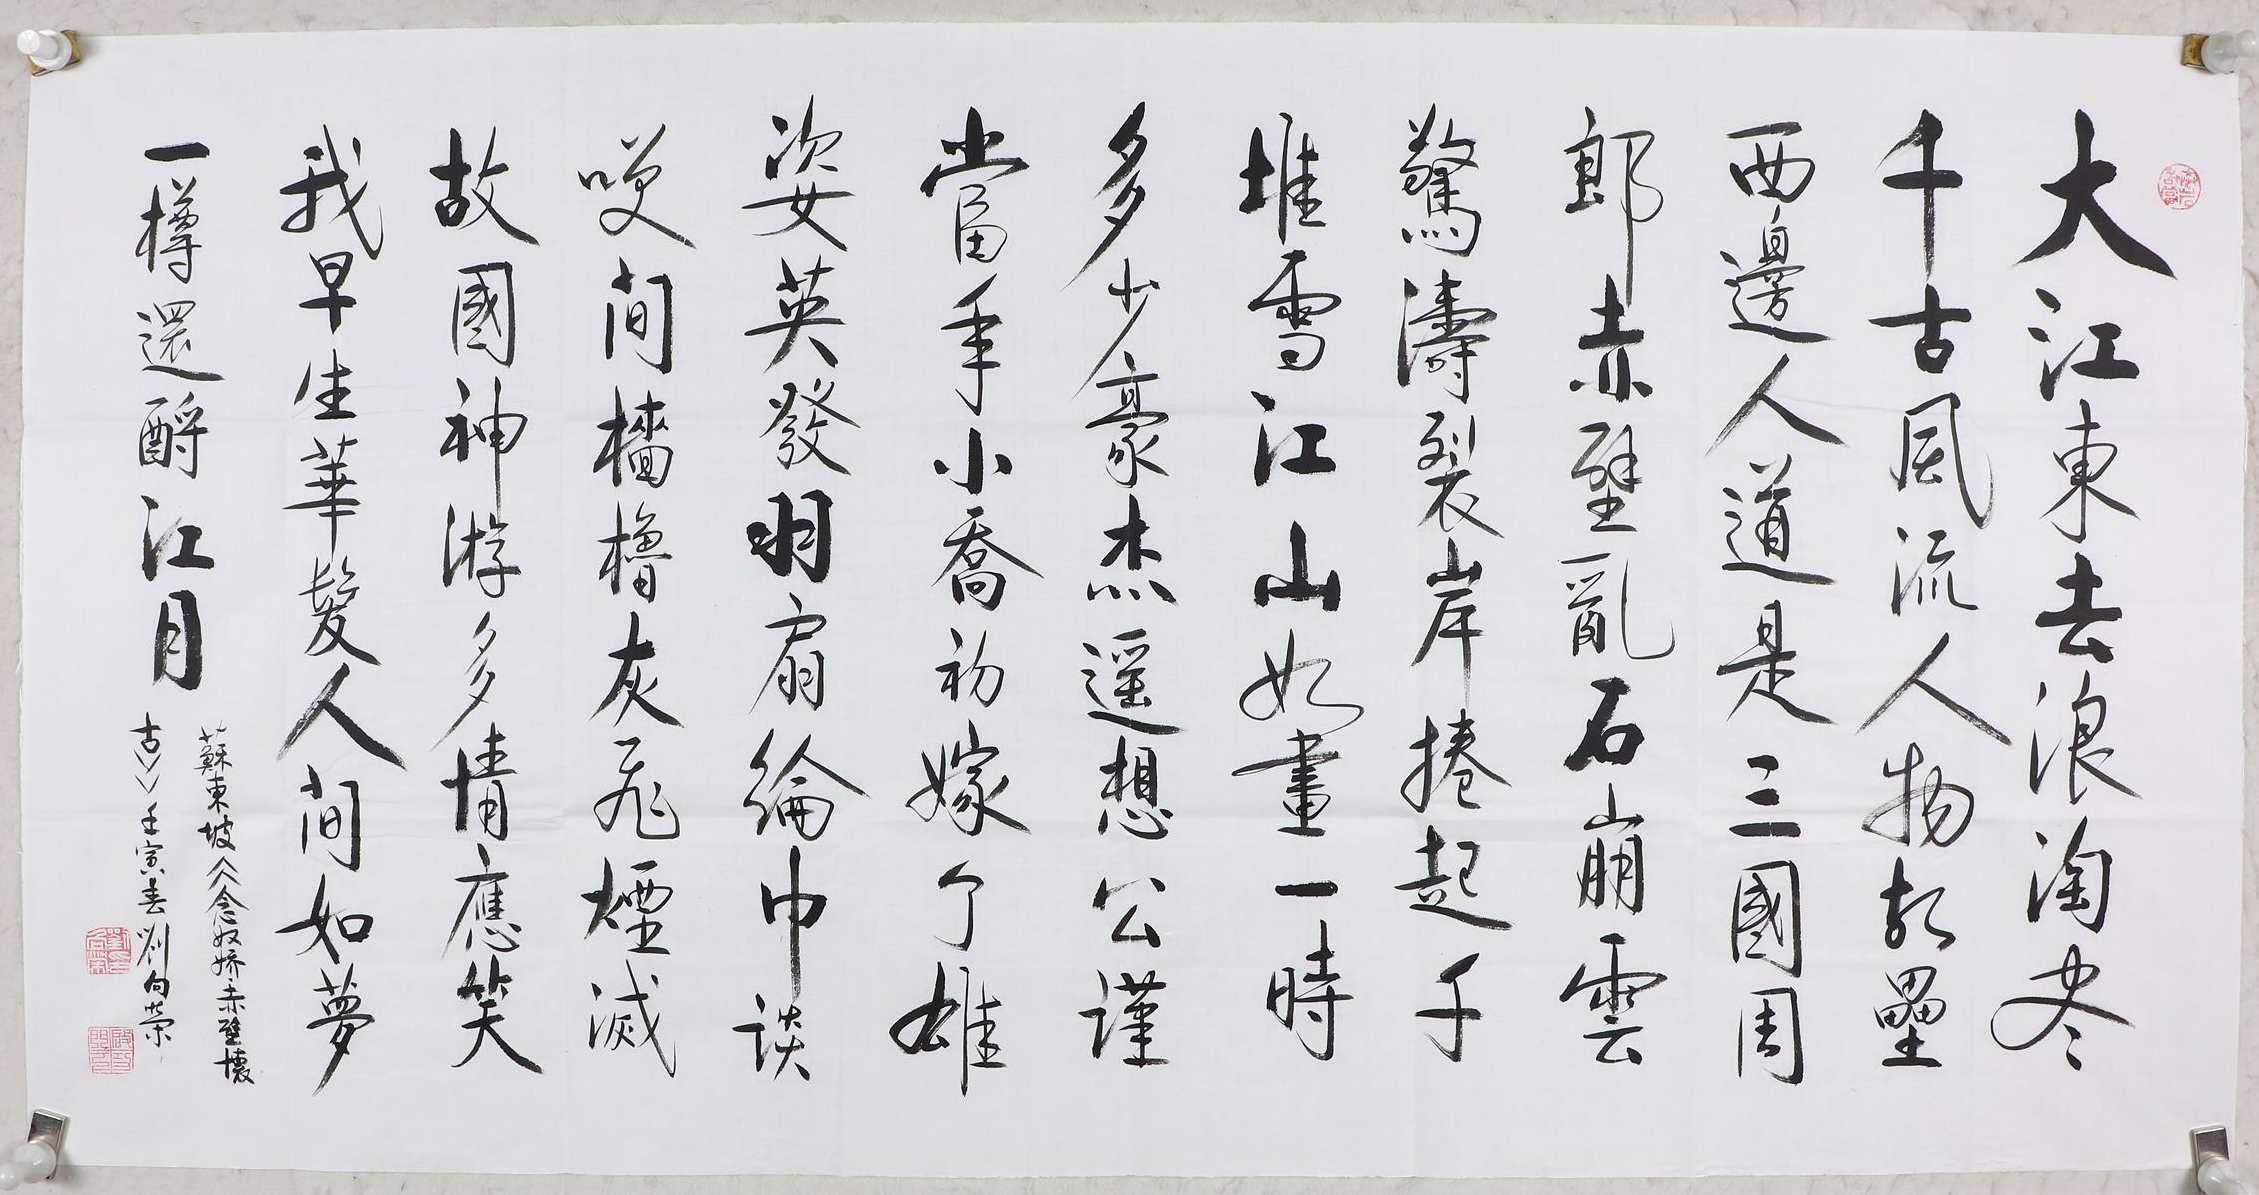 大江東去浪淘尽
千古風流人物故壘
西邊人道是三國周
郎赤壁亂石崩雲
驚濤裂岸捲起千
堆雪江山如畫一時
多少豪杰遥想公謹
當年小喬初嫁了雄
姿英發羽扇綸巾談
咲间檣櫓灰飛煙滅
故國神游多情應笑
我早生華髮人间如夢
一樽還酹江月
蘇東坡念奴嬌赤壁懷
古 壬寅春劉向榮